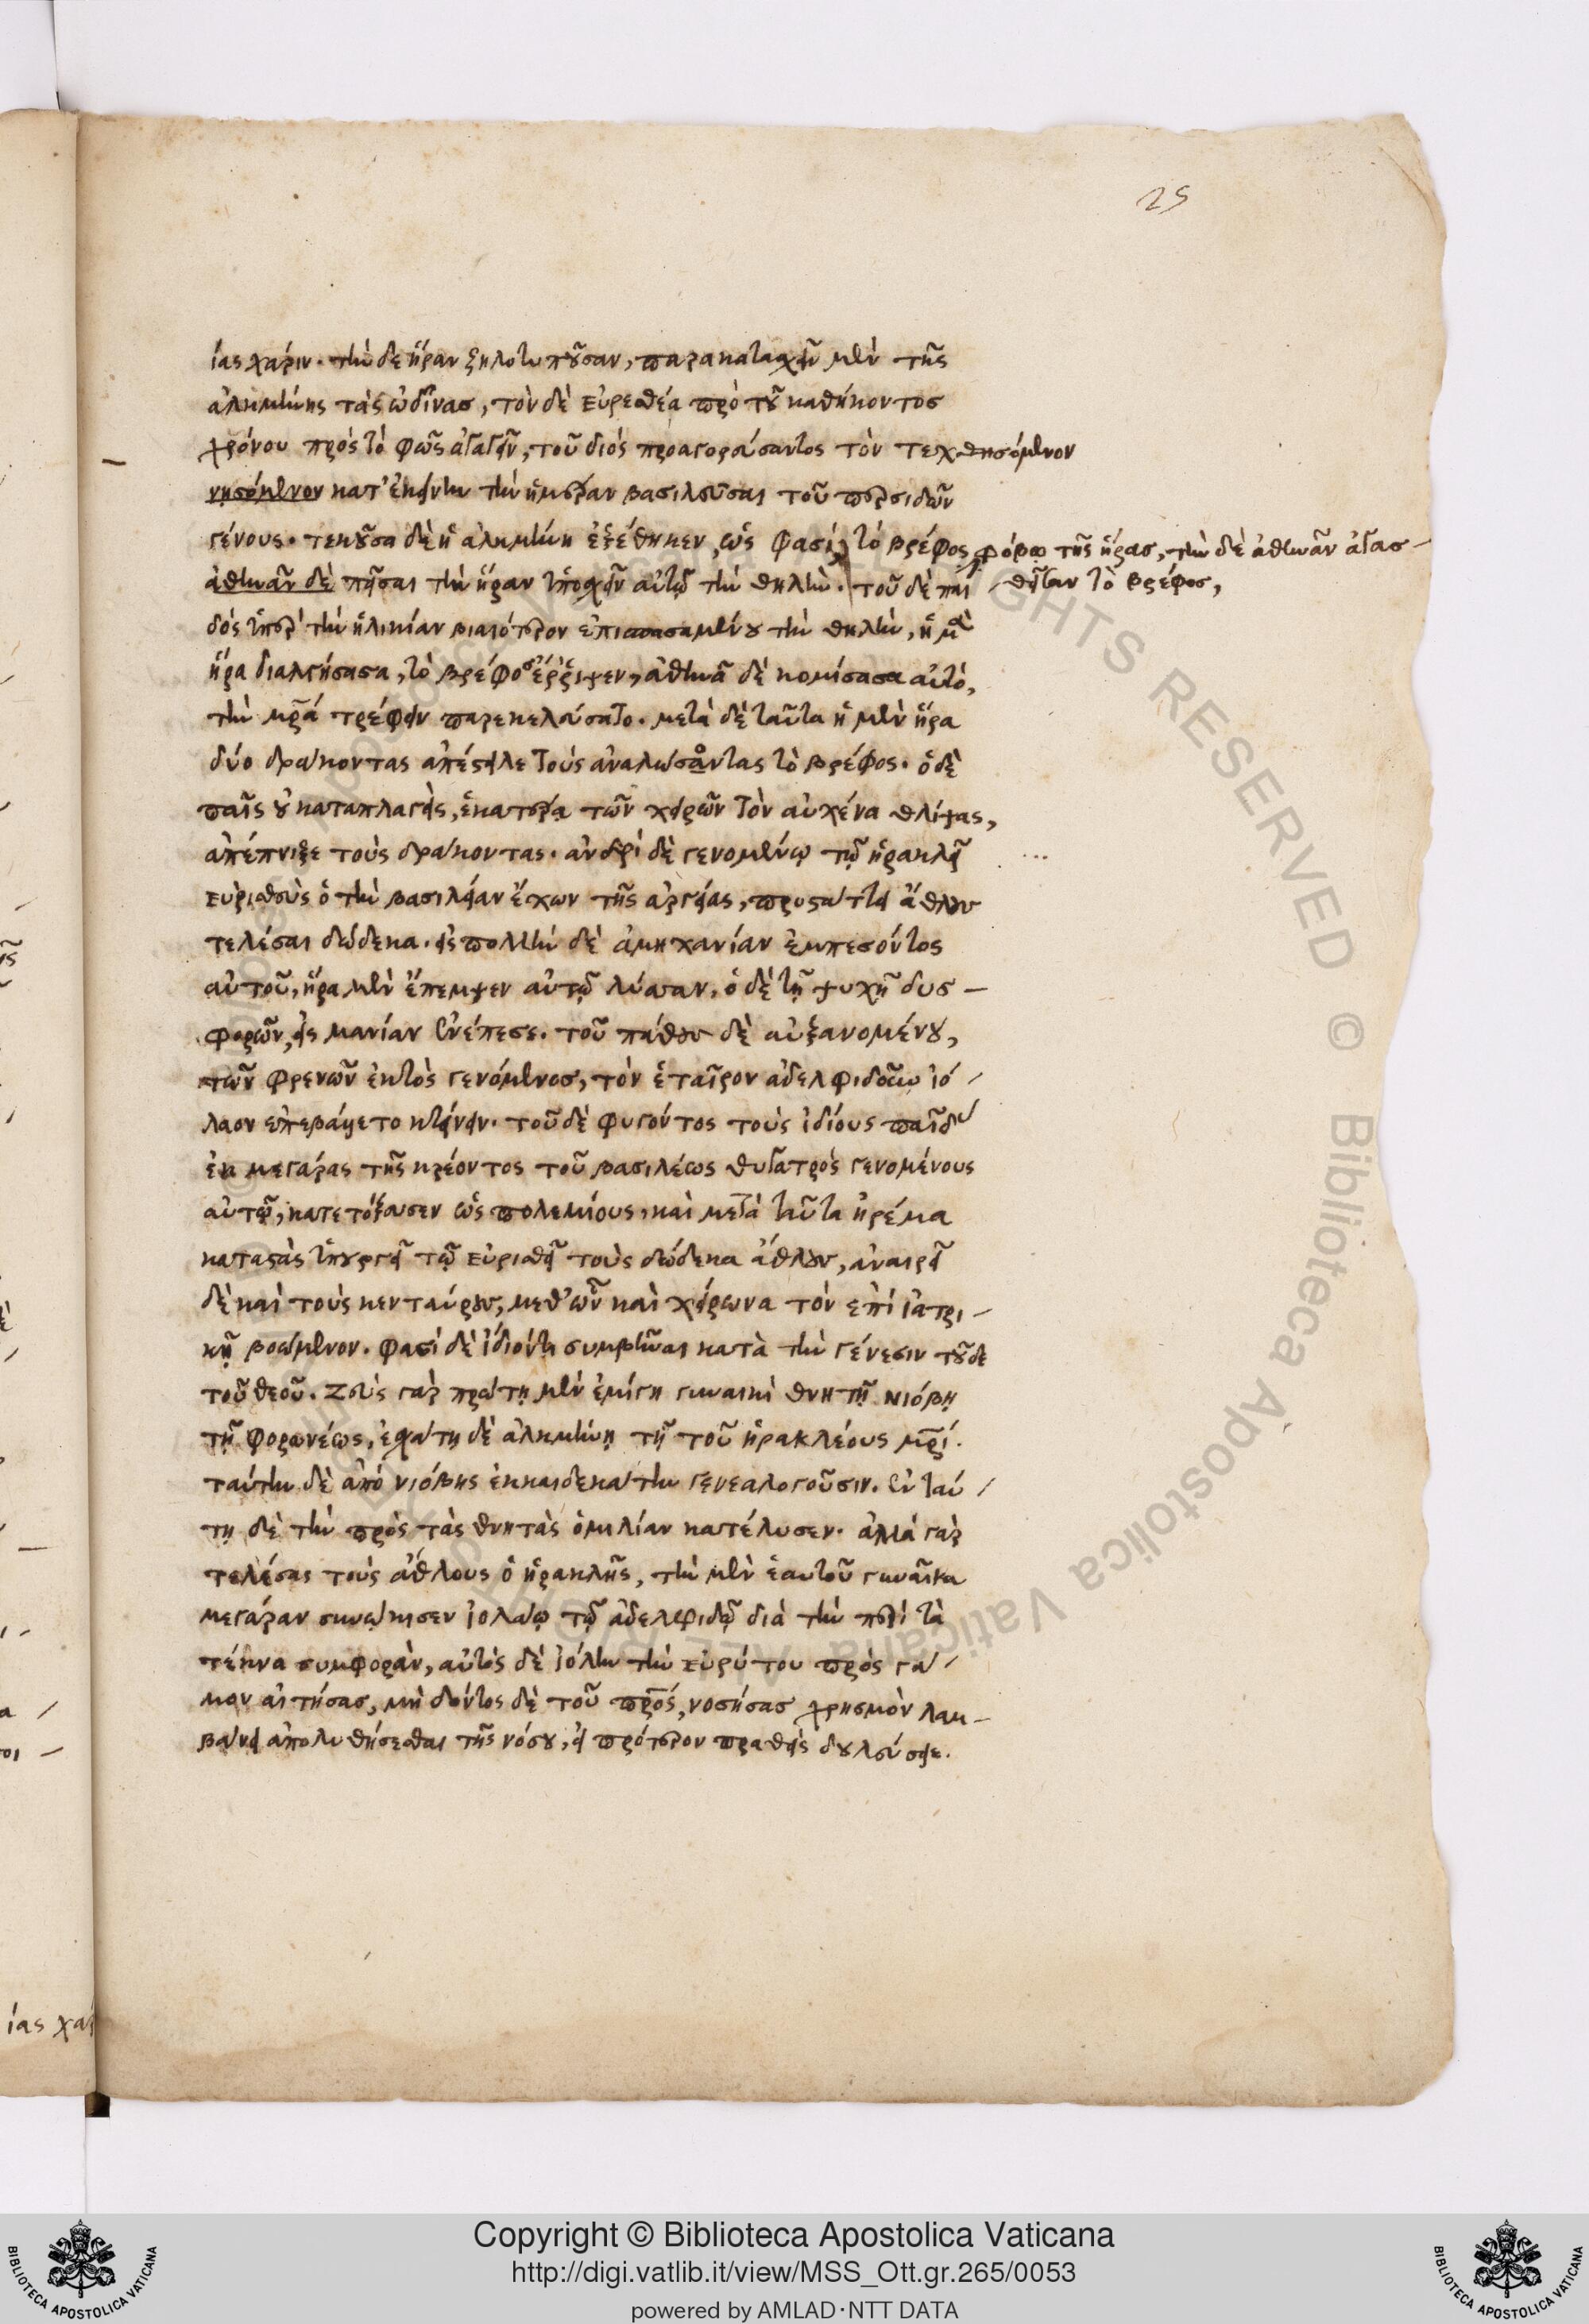 25
ίας χάριν. τὴν δὲ ἥραν ζηλοτυποῦσαν, παρακατασχεῖν μὲν τῆς
ἀλκμήνης τὰς ὠδῖνας, τὸν δὲ εὐρυσθέα πρὸ τοῦ καθήκοντος
χρόνου πρὸς τὸ φῶς ἀγαγεῖν, τοῦ διὸς προαγορεύσαντος τὸν τεχθησόμενον
νησόμενον κατ' ἐκείνην τὴν ἡμέραν βασιλεῦσαι τοῦ περσιδῶν
γένους. τεκοῦσα δὲ ἡ ἀλκμήνη ἐξέθηκεν, ὥς φασί, τὸ βρέφος φόβῳ τῆς ἥρας, τὴν δὲ ἀθηνᾶν ἀγασ-
θεῖσαν τὸ βρέφος,
ἀθηνᾶν δὲ πεῖσαι τὴν ἥραν ὑποσχεῖν αὐτῷ τὴν θηλήν. τοῦ δὲ παι
δὸς ὑπὲρ τὴν ἡλικίαν βιαιότερον ἐπισπασαμένου τὴν θηλήν, ἡ μὲν
ἥρα διαλγήσασα, τὸ βρέφος ἔρριψεν, ἀθηνᾶ δὲ κομίσασα αὐτό,
τὴν μρ̄ά τρέφειν παρεκελεύσατο. μετὰ δὲ ταῦτα ἡ μὲν ἥρα
δύο δράκοντας ἀπέστειλε τοὺς ἀναλώσοντας τὸ βρέφος. ὁ δὲ
παῖς οὐ καταπλαγείς, ἑκατέρᾳ τῶν χειρῶν τὸν αὐχένα θλίψας,
ἀπέπνιξε τοὺς δράκοντας. ἀνδρὶ δὲ γενομένῳ τῷ ἡρακλεῖ
εὐρισθεὺς ὁ τὴν βασιλείαν ἔχων τῆς ἀργείας, προστάττει ἄθλους
τελέσαι δώδεκα. εἰς πολλὴν δὲ ἀμηχανίαν ἐμπεσόντος
αὐτοῦ, ἥρα μὲν ἔπεμψεν αὐτῷ λύσσαν, ὁ δὲ τῇ ψυχῇ δυσ-
φορῶν, εἰς μανίαν ἐνέπεσε. τοῦ πάθους δὲ αὐξανομένου,
τῶν φρενῶν ἐκτὸς γενόμενος, τὸν ἑταῖρον ἀδελφιδοῦν ἰό-
λαον ἐπεβάλετο κτείνειν. τοῦ δὲ φυγόντος τοὺς ἰδίους παῖδας
ἐκ μεγάρας τῆς κρέοντος τοῦ βασιλέως θυγατρὸς γενομένους
αὐτῷ, κατετόξευσεν ὡς πολεμίους, καὶ μετὰ ταῦτα ἠρέμα
καταστὰς ὑπουργεῖ τῷ εὐρισθεῖ τοὺς δώδεκα ἄθλους, ἀναιρεῖ
δὲ καὶ τοὺς κενταύρους, μεθ' ὧν καὶ χείρωνα τὸν ἐπὶ ἰατρι-
κῇ βοώμενον. φασὶ δὲ ἴδιόν τι συμβῆναι κατὰ τὴν γένεσιν τοῦδε
τοῦ θεοῦ. ζεὺς γὰρ πρώτῃ μὲν ἐμίγη γυναικὶ θνητῇ νιόβῃ
τῇ φορωνέως, ἐσχάτῃ δὲ ἀλκμήνῃ τῇ τοῦ ἡρακλέους μρ̄ί.
ταύτην δὲ ἀπὸ νιόβης ἑκκαιδεκάτην γενεαλογοῦσιν. ἐν ταύ-
τῃ δὲ τὴν πρὸς τὰς θνητὰς ὁμιλίαν κατέλυσεν. ἀλλὰ γὰρ
τελέσας τοὺς ἄθλους ὁ ἡρακλῆς, τὴν μὲν ἑαυτοῦ γυναῖκα
μεγάραν συνῴκισεν ἰολάῳ τῷ ἀδελφιδῷ διὰ τὴν περὶ τὰ
τέκνα συμφοράν, αὐτὸς δὲ ἰόλην τὴν εὐρύτου πρὸς γά-
μον αἰτήσας, μὴ δόντος δὲ τοῦ πρ̄ός, νοσήσας χρησμὸν λαμ-
βάνει ἀπολυθήσεσθαι τῆς νόσου, εἰ πρότερον πραθεὶς δουλεύσειε.
ίας χάρ
Copyright © Biblioteca Apostolica Vaticana
http://digi.vatlib.it/view/MSS_Ott.gr.265/0053
powered by AMLAD·NTT DATA